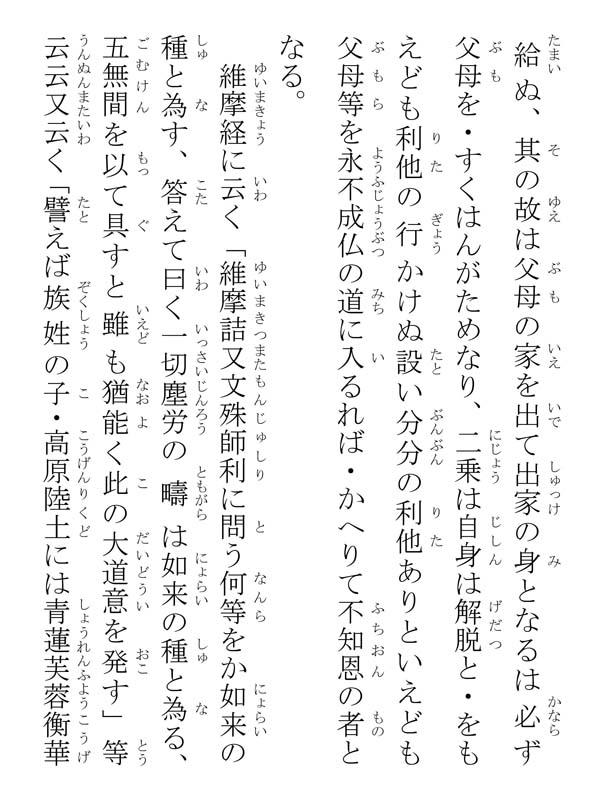 給ぬ、其の故は父母の家を出て出家の身となるは必ず
父母を・すくはんがためなり、二乗は自身は解脱と・をも
えども利他の行かけぬ設い分分の利他ありといえども
父母等を永不成仏の道に入るれば・かへりて不知恩の者と
なる。
維摩経に云く「維摩詰又文殊師利に問う何等をか如来の
種と為す、答えて曰く一切塵労の疇は如来の種と為る、
五無間を以て具すと雖も猶能く此の大道意を発す」等
云云又云く「譬えば族姓の子・高原陸土には青蓮芙蓉衡華